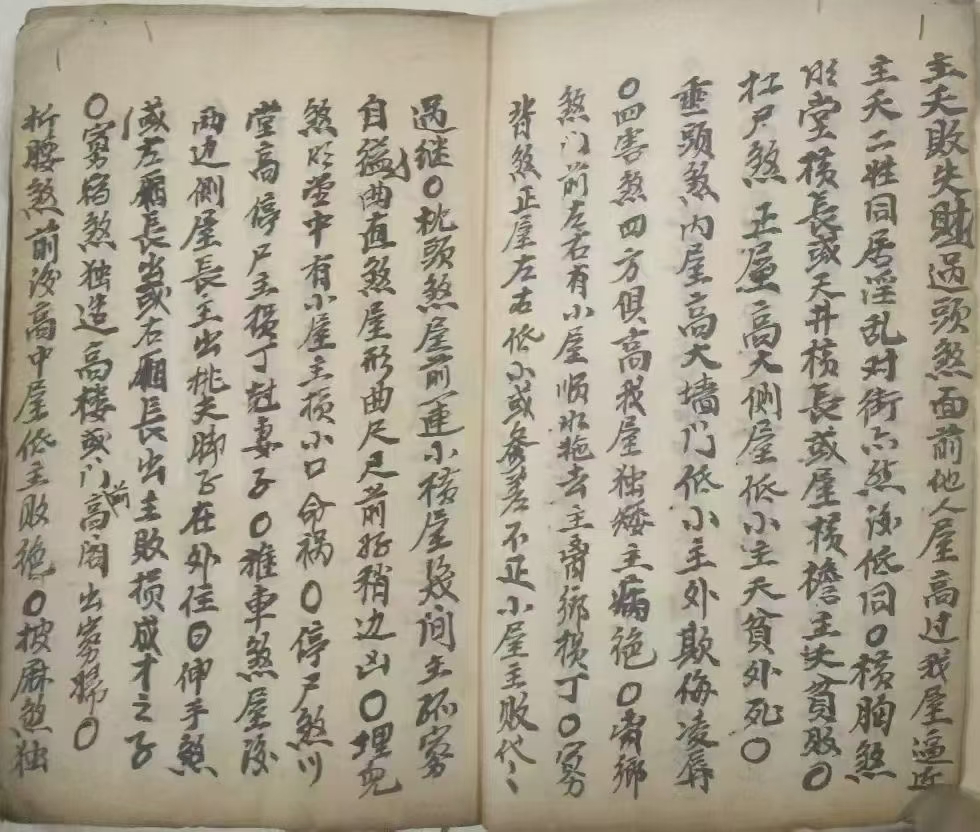 主夭败失财過頭煞面前他人屋高过我屋逼近
主夭二姓同居淫乱对街亦然後低同○横胸煞
明堂横長或天井横長或屋横檐主失貧败○
扛尸煞正屋高大側屋低小主夭貧外死○
垂頭煞内屋高大墙门低小主外欺侮凌辱
○四害煞四方俱高我屋独矮主病绝○离鄉
煞门前左右有小屋順水拖去主离鄉损丁○寡
背煞正屋左右低小或参差不正小屋主败代〻
过继○枕頭煞屋前連小横屋幾间主孤寡
自缢曲直煞屋形曲尺尺前 稍边凶○埋児
煞明堂中有小屋主损小口命祸○停尸煞川
堂高停尸主损丁尅妻子○推車煞屋後
两边側屋長主出挑夫脚子在外住○伸手煞
或左廂長出或右廂長出主败损成才之子
○寡宿煞独造高楼或门前高阁出寡婦○
折腰煞前後高中屋低主败绝○披麻煞独